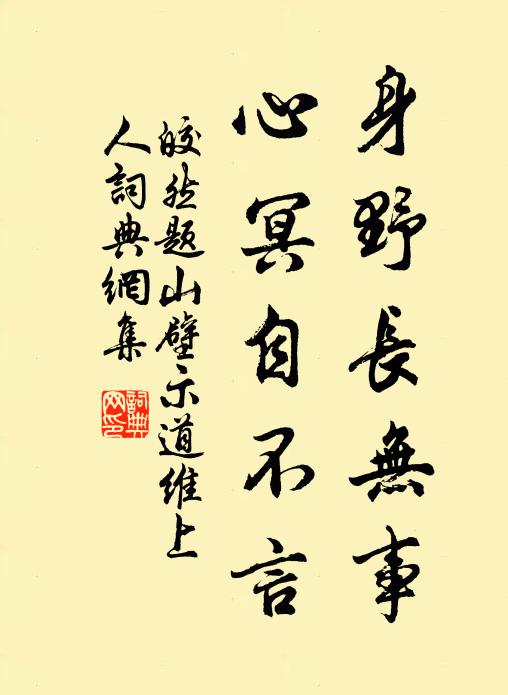 身野長無事
心冥自不言
皎然題山壁示道維上
人詞典網集
詞典
网印